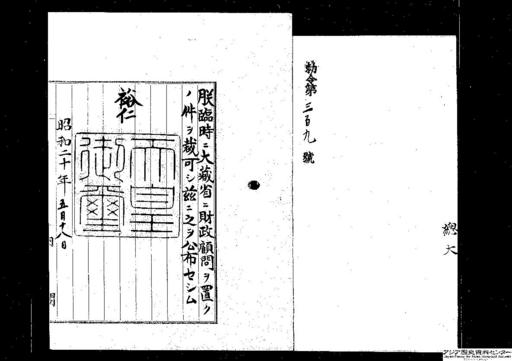 勅令第三百九號
總
大
朕臨時ニ大藏省ニ財政顧問ヲ置ク
ノ件ヲ裁可シ玆ニ之ヲ公布セシム
裕仁
天皇御璽
昭和二十年五月十八日
アジア歴史資料センター